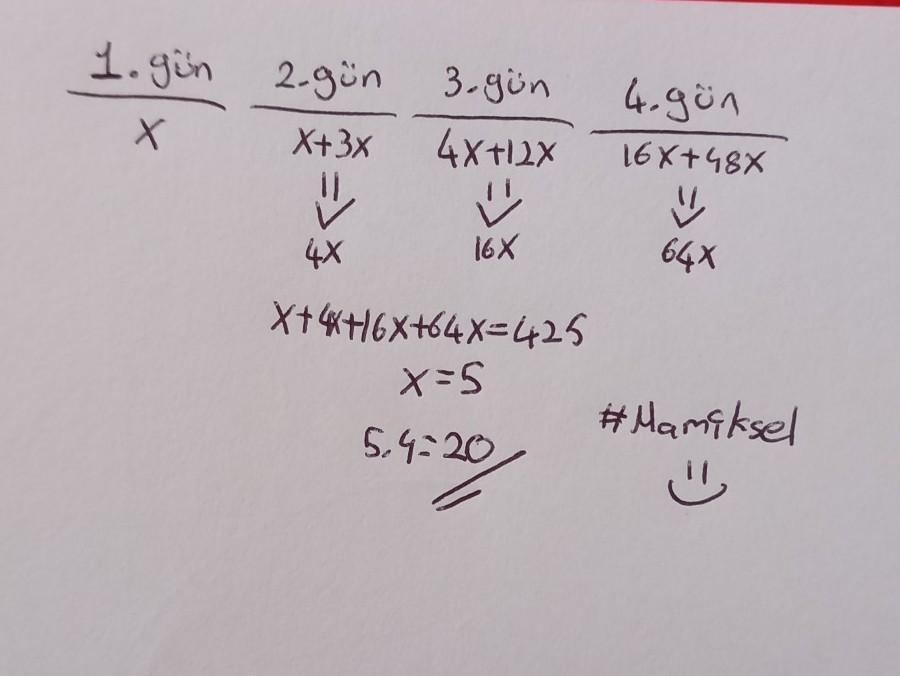 1. gün 2. gün 3. gün 4. gün
x x+3x 4x+12x 16x+48x
4x 16x 64x
x+4x+16x+64x=425
x=5
5.4=20
#Mamiksel